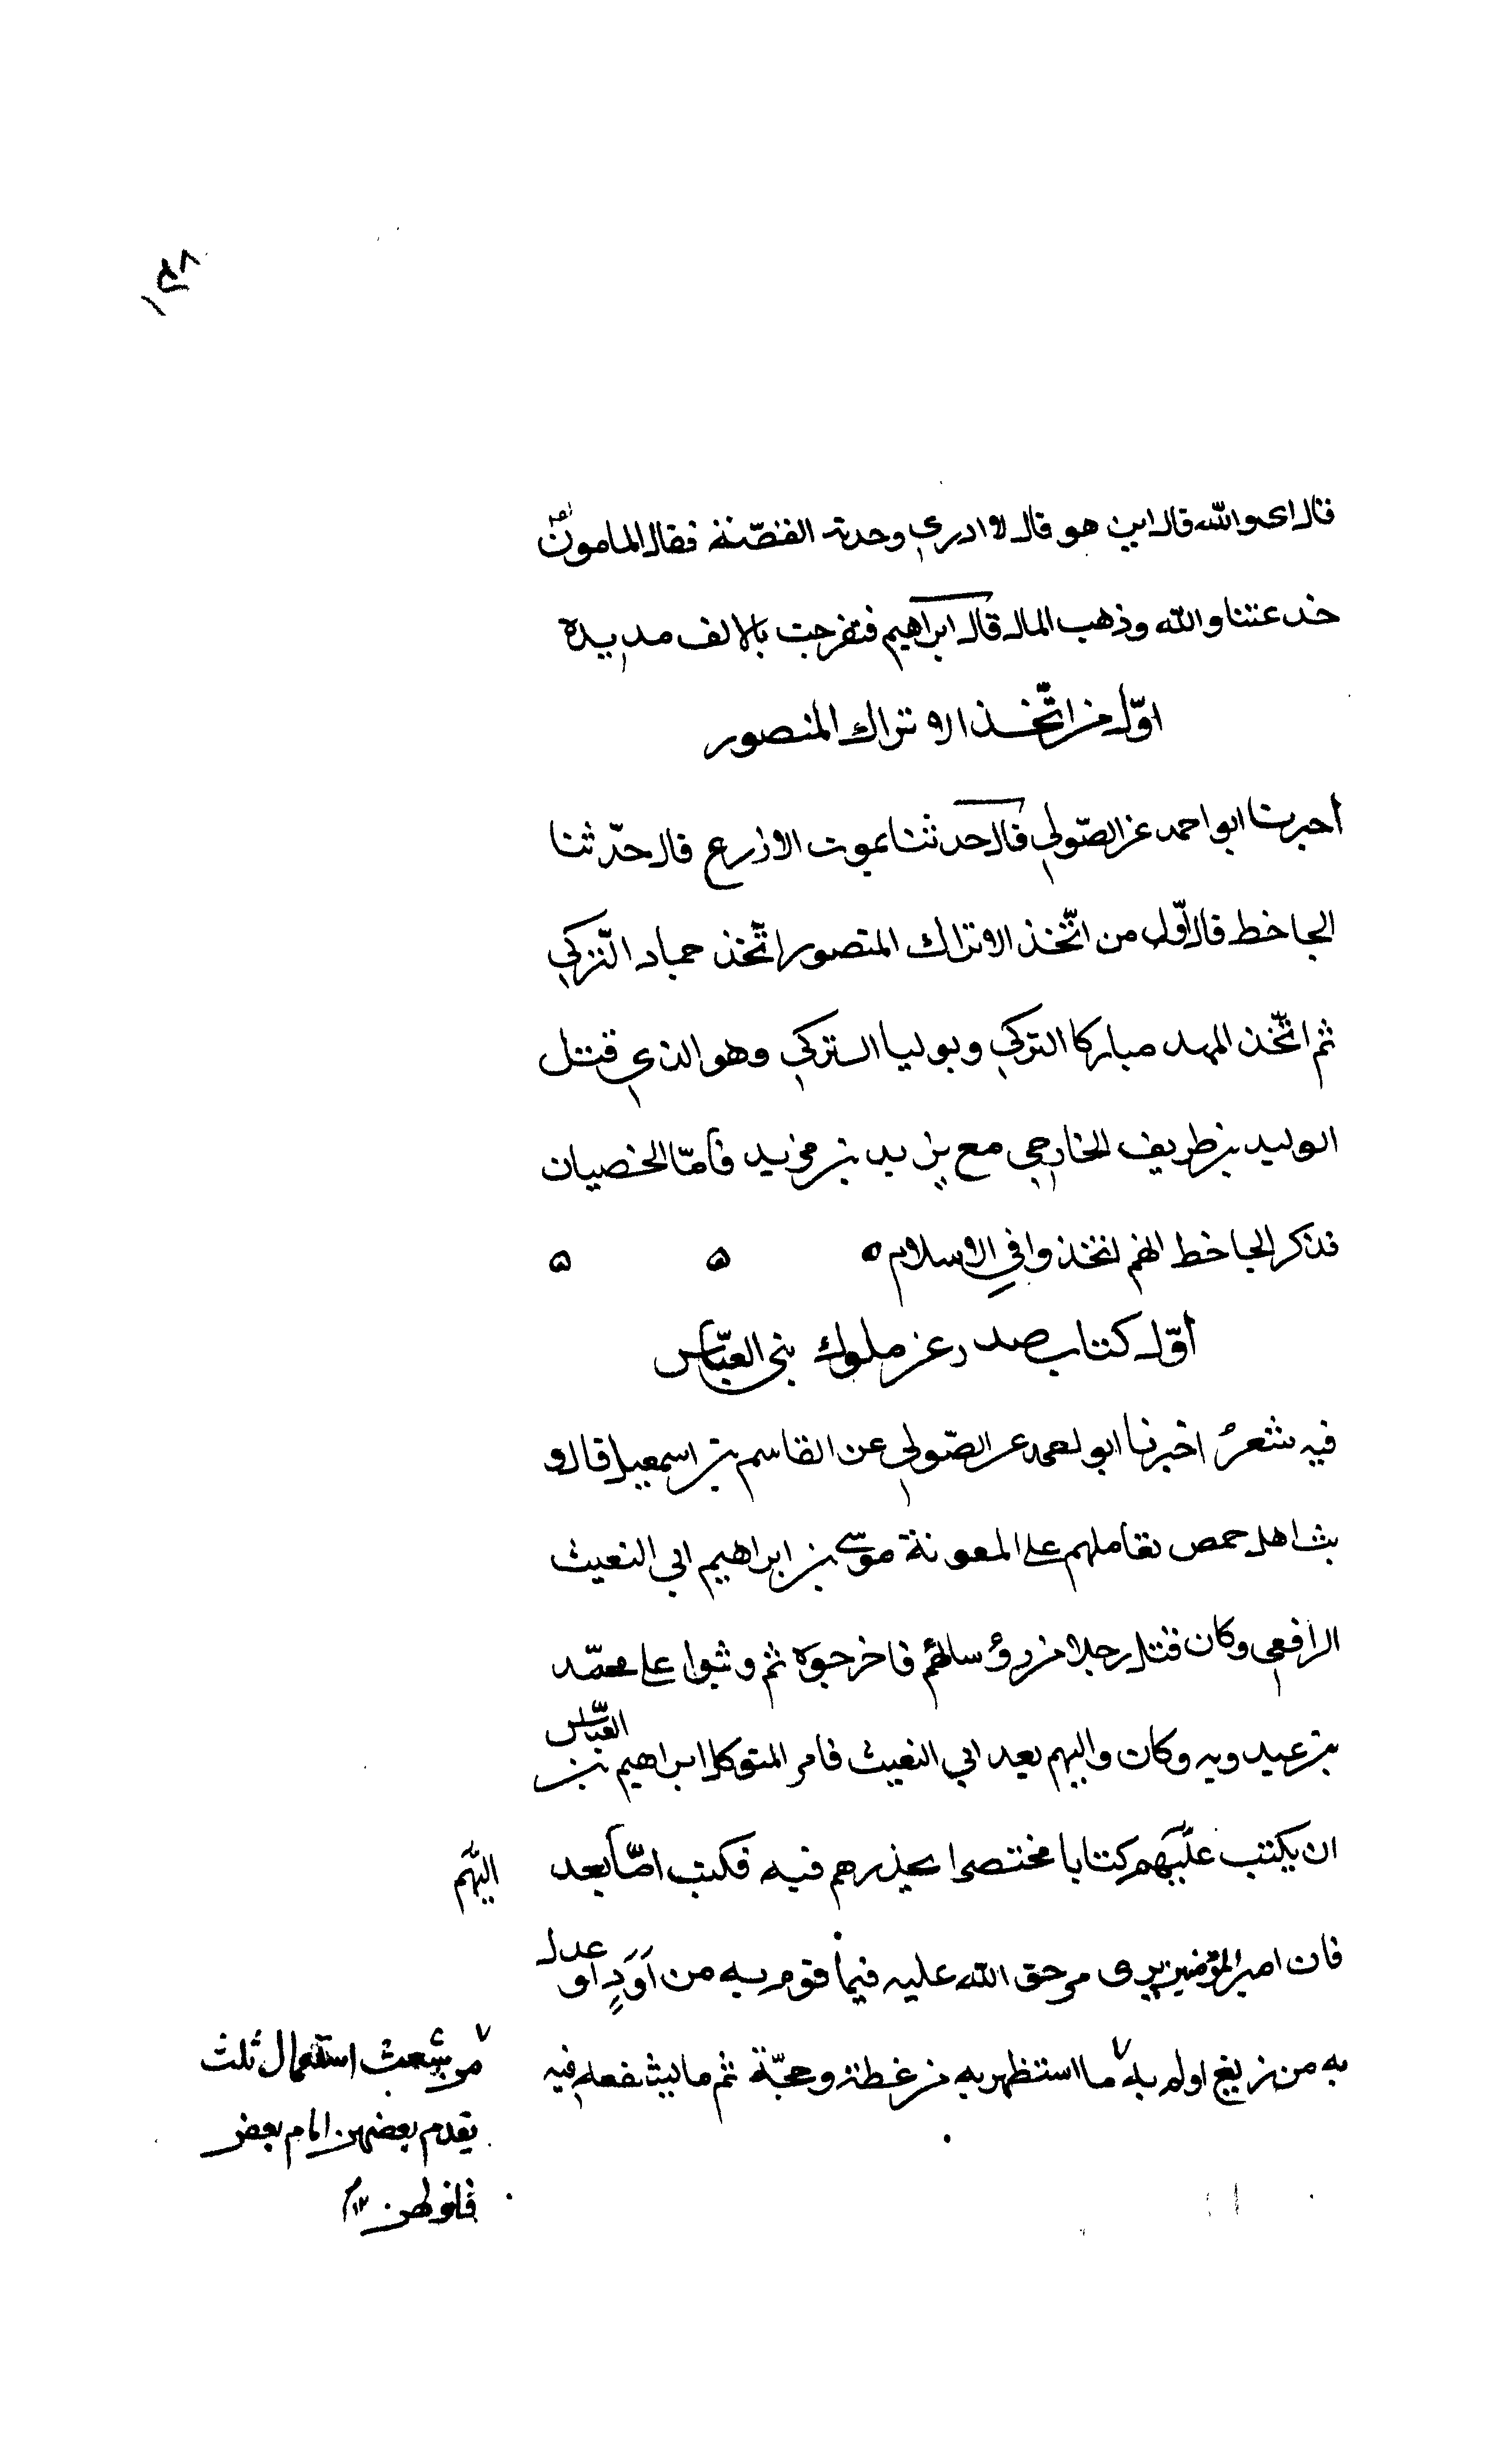 قال اى والله قال اين هو قال لا ادري وحدثه القصّة فقال المامون
خدعتنا والله وذهب المال قال ابراهيم فتفرجت بالالف مديدة
اوّل من اتّخذ الاتراك المنصور
أخبرنا ابو احمد عن الصّولي قال حدثنا يموت الازرع قال حدّثنا
الجاخظ قال اوّل من اتّخذ الاتراك المنصور اتّخذ حماد التركي
ثم اتّخذ المهد مباركا التركي وبوليا التركي وهو الذي قتل
الوليد بن طريف الخارجي مع يزيد بن مزيد فامّا الخصيان
فذكر الجاخظ انهم اتخذوا في الاسلام ه ه ه
أوّل كتاب صدر عن ملوك بني العبّاس
فيه شعرٌ اخبرنا ابو احمد عن الصّولي عن القاسم بن اسمعيل قال و
بث اهل حمص بعاملهم على المعونة موسى بن ابراهيم ابي النعيث
الرافعي وكان قتل رجلا من رؤسائهم فاخرجوه ثم وثبوا على محمّد
بن عبدويه وكان واليهم بعد ابي النعيث فامر المتوكل ابراهيم بن
العبّاس
ان يكتب عليهم كتابا مختصرا يحذرهم فيه فكتب امّا بعد
اليهم
فان امير المؤمنين يرى من حق الله عليه فيما قوم به من اَوَدٍ او
عدل
به من زيغ اولم به ما استظهر به من غطة وحجّة ثم ما يشفعه فيه
من شعث استعمال ثلث
يقدم بعضهن امام بعض
فاولهن ١٢